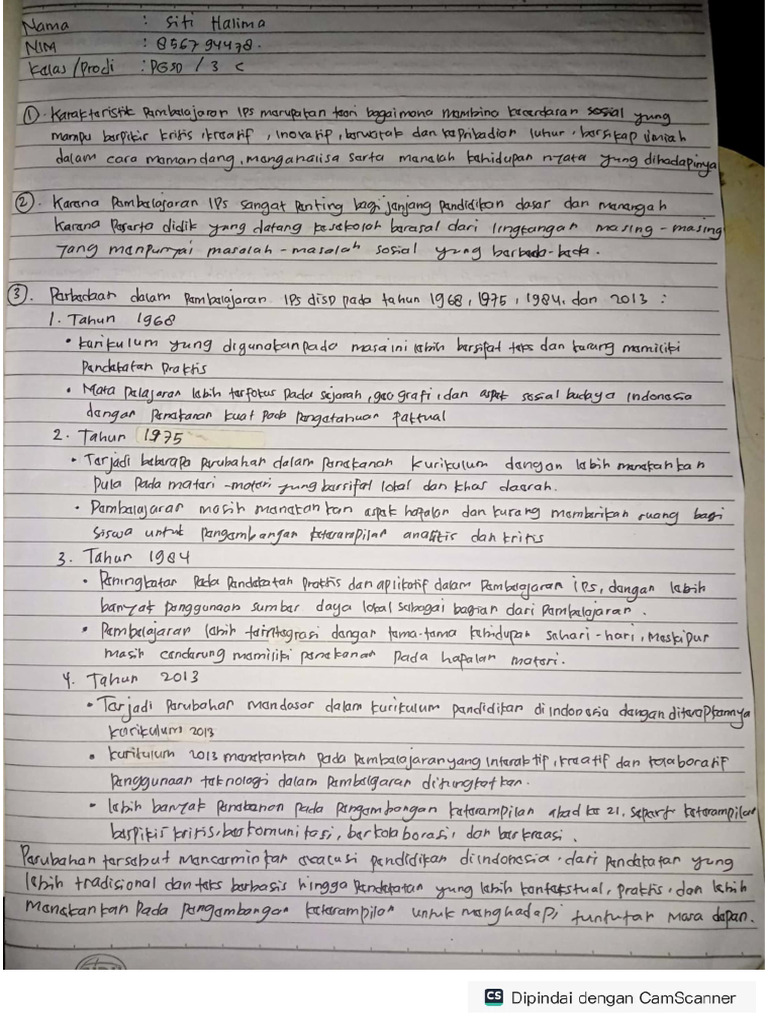 Nama : Siti Halima
NIM : 856794478.
Kelas /Prodi : PGSD / 3 C
① . Karakteristik Pembelajaran IPS merupakan teori bagaimana membina kecerdasan sosial yang
mampu berpikir kritis, kreatif, inovatif, berwatak dan kepribadian luhur, bersikap ilmiah
dalam cara memandang, menganalisa serta menelah kehidupan nyata yang dihadapinya
② . Karena Pembelajaran IPS sangat penting bagi jenjang pendidikan dasar dan menengah
karena peserta didik yang datang kesekolah berasal dari lingkangan masing - masing
yang mempunyai masalah - masalah sosial yang berbeda-beda.
③ . Perbedaan dalam pembelajaran IPS disD pada tahun 1968, 1975, 1984, dan 2013 :
1. Tahun 1968
• kurikulum yang digunakan pada masa ini lebih bersifat teks dan kurang memiliki
Pendekatan Praktis
• Mata pelajaran lebih terfokus pada sejarah, geografi, dan aspek sosial budaya Indonesia
dengan penekanan kuat pada pengetahuan faktual
2. Tahun 1975
• Terjadi beberapa perubahan dalam penekanan kurikulum dengan lebih menekankan
pula pada materi-materi yang bersifat lokal dan khas daerah.
• Pembelajaran masih menekankan aspek hapalan dan kurang memberikan ruang bagi
siswa untuk pengembangan keterampilan analitis dan kritis
3. Tahun 1984
• Peningkatan pada pendekatan praktis dan aplikatif dalam pembelajaran IPS, dengan lebih
banyak penggunaan sumber daya lokal sebagai bagian dari pembelajaran.
• Pembelajaran lebih terintegrasi dengan tema-tema kehidupan sehari-hari, Meskipun
masih cenderung memiliki penekanan pada hapalan materi.
4. Tahun 2013
• Terjadi perubahan mendasar dalam kurikulum pendidikan di indonesia dengan diterapkannya
kurikulum 2013
• kurikulum 2013 menekankan pada pembelajaran yang interaktif, kreatif dan kolaboratif
penggunaan teknologi dalam pembelajaran ditingkatkan.
• lebih banyak penekanan pada pengembangan keterampilan abad ke 21, seperti keterampilan
berpikir kritis, berkomunikasi, berkolaborasi, dan berkreasi.
Perubahan tersebut mencerminkan evolusi pendidikan diindonesia. dari pendekatan yang
lebih tradisional dan teks berbasis hingga pendekatan yang lebih kontekstual, praktis, dan lebih
menekankan pada pengembangan keterampilan untuk menghadapi tuntutan masa depan.
CS Dipindai dengan CamScanner